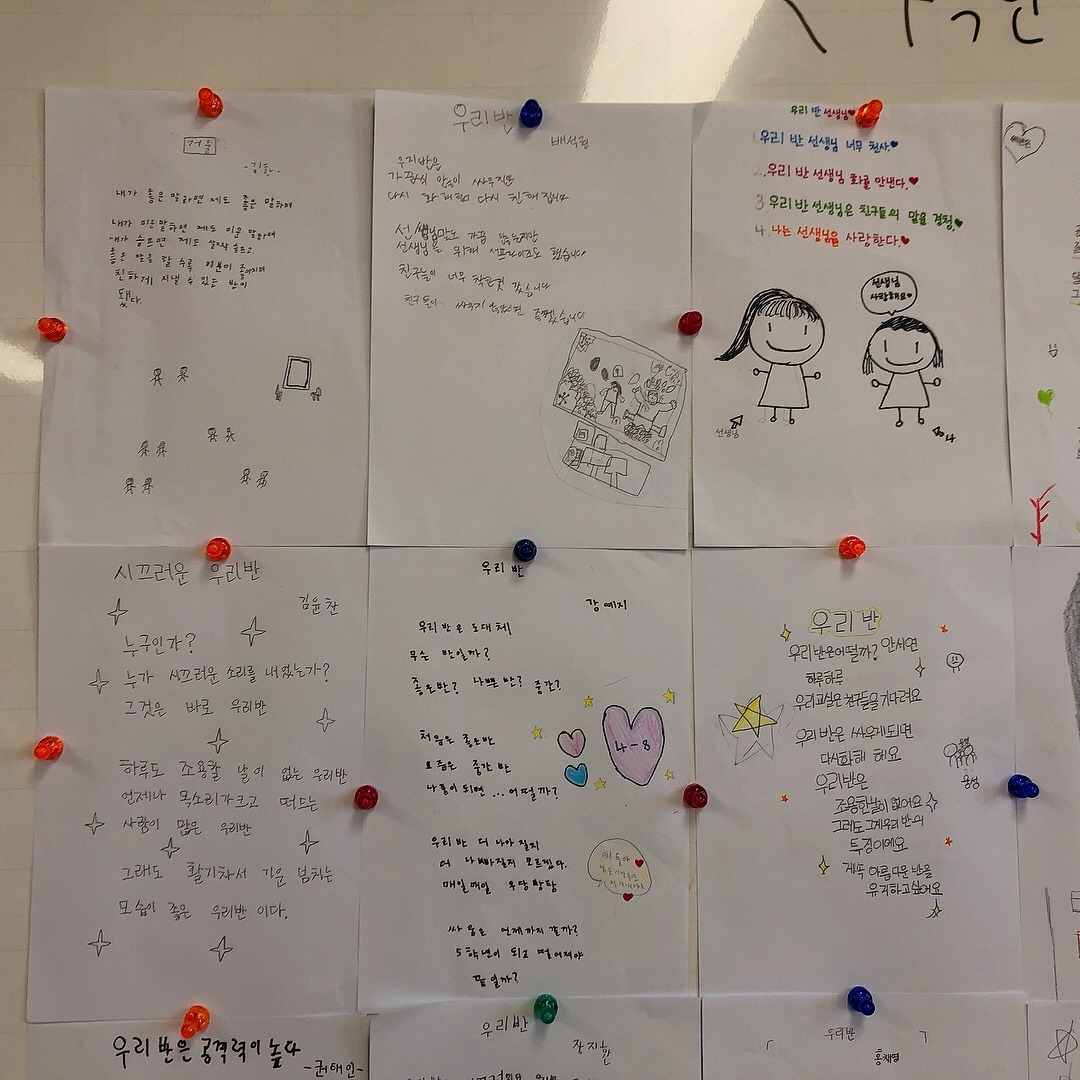 거울
-김환-
내가 좋은 말하면 쟤도 좋은 말하며
내가 미운말하면 쟤도 미운 말하며
내가 슬프면 쟤도 슬프고,
좋은 말을 할 수록 기분이 좋아지며
친하게 지낼 수 있는 반이
됐다.
우리반
배석형
우리반은
가끔식 싸우지만
다시 다시 친해집니다
선생님말도 가끔 않듣지만
선생님을 위해 서프라이즈도 했습니다
친구들이 너무 착한것 같습니다
친구들이 싸우지 않았으면 좋겠습니다
우리 반 선생님♥
1.우리 반 선생님 너무 천사.♥
2.우리 반 선생님 화를 안낸다.♥
3.우리 반 선생님은 친구들의 마음을 걱정.♥
4.나는 선생님을 사랑한다.♥
선생님
사랑해요♥
선생님
나
시끄러운 우리반
김윤찬
누구인가?
누가 시끄러운 소리를 내었는가?
그것은 바로 우리반
하루도 조용할 날이 없는 우리반
언제나 목소리가크고 떠드는
사람이 많은 우리반
그래도 활기차서 기운 넘치는
모습이 좋은 우리반 이다.
우리 반
강예지
우리 반은 도대체
무슨 반일까?
좋은반? 나쁜 반? 중간?
처음은 좋은반
요즘은 중간 반
나중이 되면 ... 어떨까?
4-8
우리 반 더 나아 질지
더 나빠질지 모르겠다.
매일매일 우당탕탕
싸움은 언제까지 갈까?
5학년이 되고 떨어져야
끝일까?
우리반
우리 반은어떨까? 안서연
하루하루
우리교실은 친구들을기다려요
우리 반은 싸우게되면
다시화해 해요
우리반은
조용한날이 없어요
그래도 그게우리 반의
특징이에요
계속 아름다운 반을
유지하고싶어요
우리 반은 공격력이 높다
-권태인-
우리반
우리반
홍재영